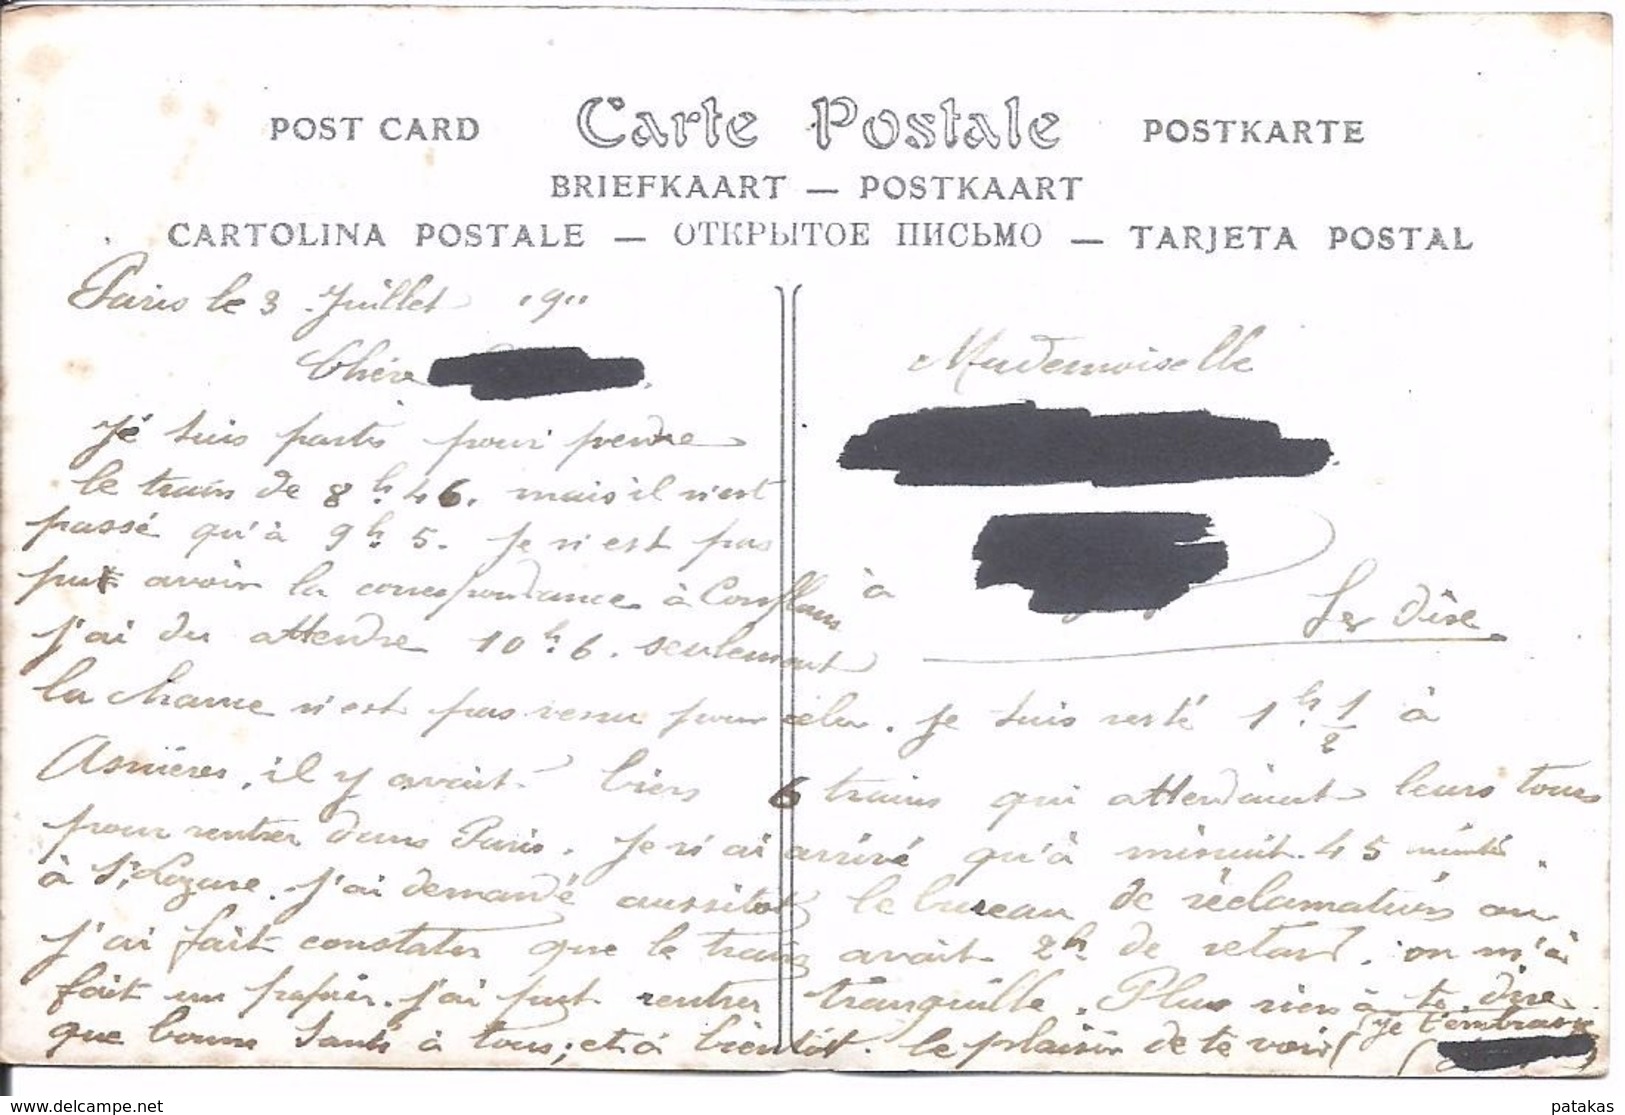 POST CARD Carte Postale POSTKARTE
BRIEFKAART — POSTKAART
CARTOLINA POSTALE — ОТКРЫТОЕ ПИСЬМО — TARJETA POSTAL
Paris le 3 Juillet 1911
Chère
Mademoiselle
Je suis partis pour prendre
le train de 8h.46. mais il n'est
passé qu'à 9h.5. Je n'est pas
put avoir la correspondance à Conflans
à
S. et Oise
j'ai du attendre 10h.6. seulement
la chance n'est pas venu pour cela. Je suis resté 1h 1/2 à
Asnières, il y avait bien 6 trains qui attendaient leurs tours
pour rentrer dans Paris. Je n'ai arrivé qu'à minuit 45 minutes
à St Lazare. J'ai demandé aussitot le bureau de réclamations ou
j'ai fait constater que le train avait 2h de retard. on m'a
fait un papier. j'ai put rentrer tranquille. Plus rien à te dire
que bonne santé à tous; et à bientôt. le plaisir de te voir (je t'embrasse
patakas
www.delcampe.net